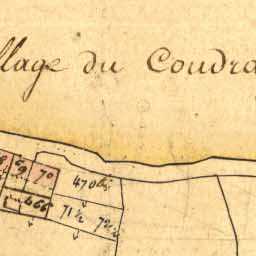 llage du Coudra
69 70 470 bis
466 71 ½ 72 ½